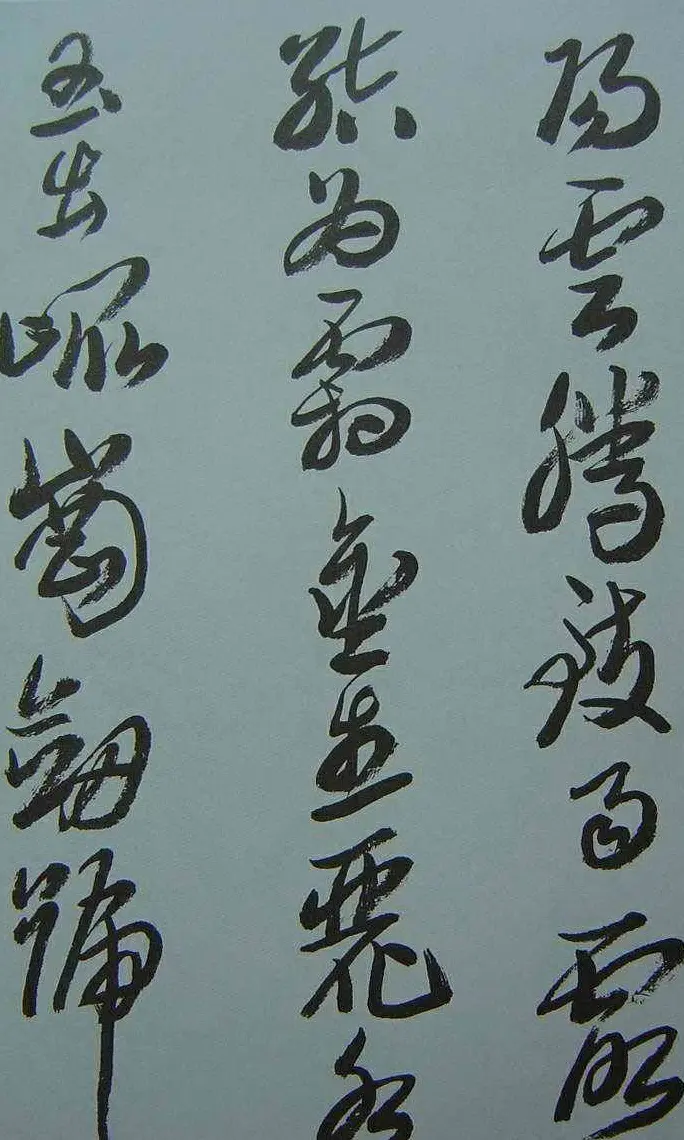 陽雲騰致雨露
結為霜金生麗水
玉出崐崗劍號